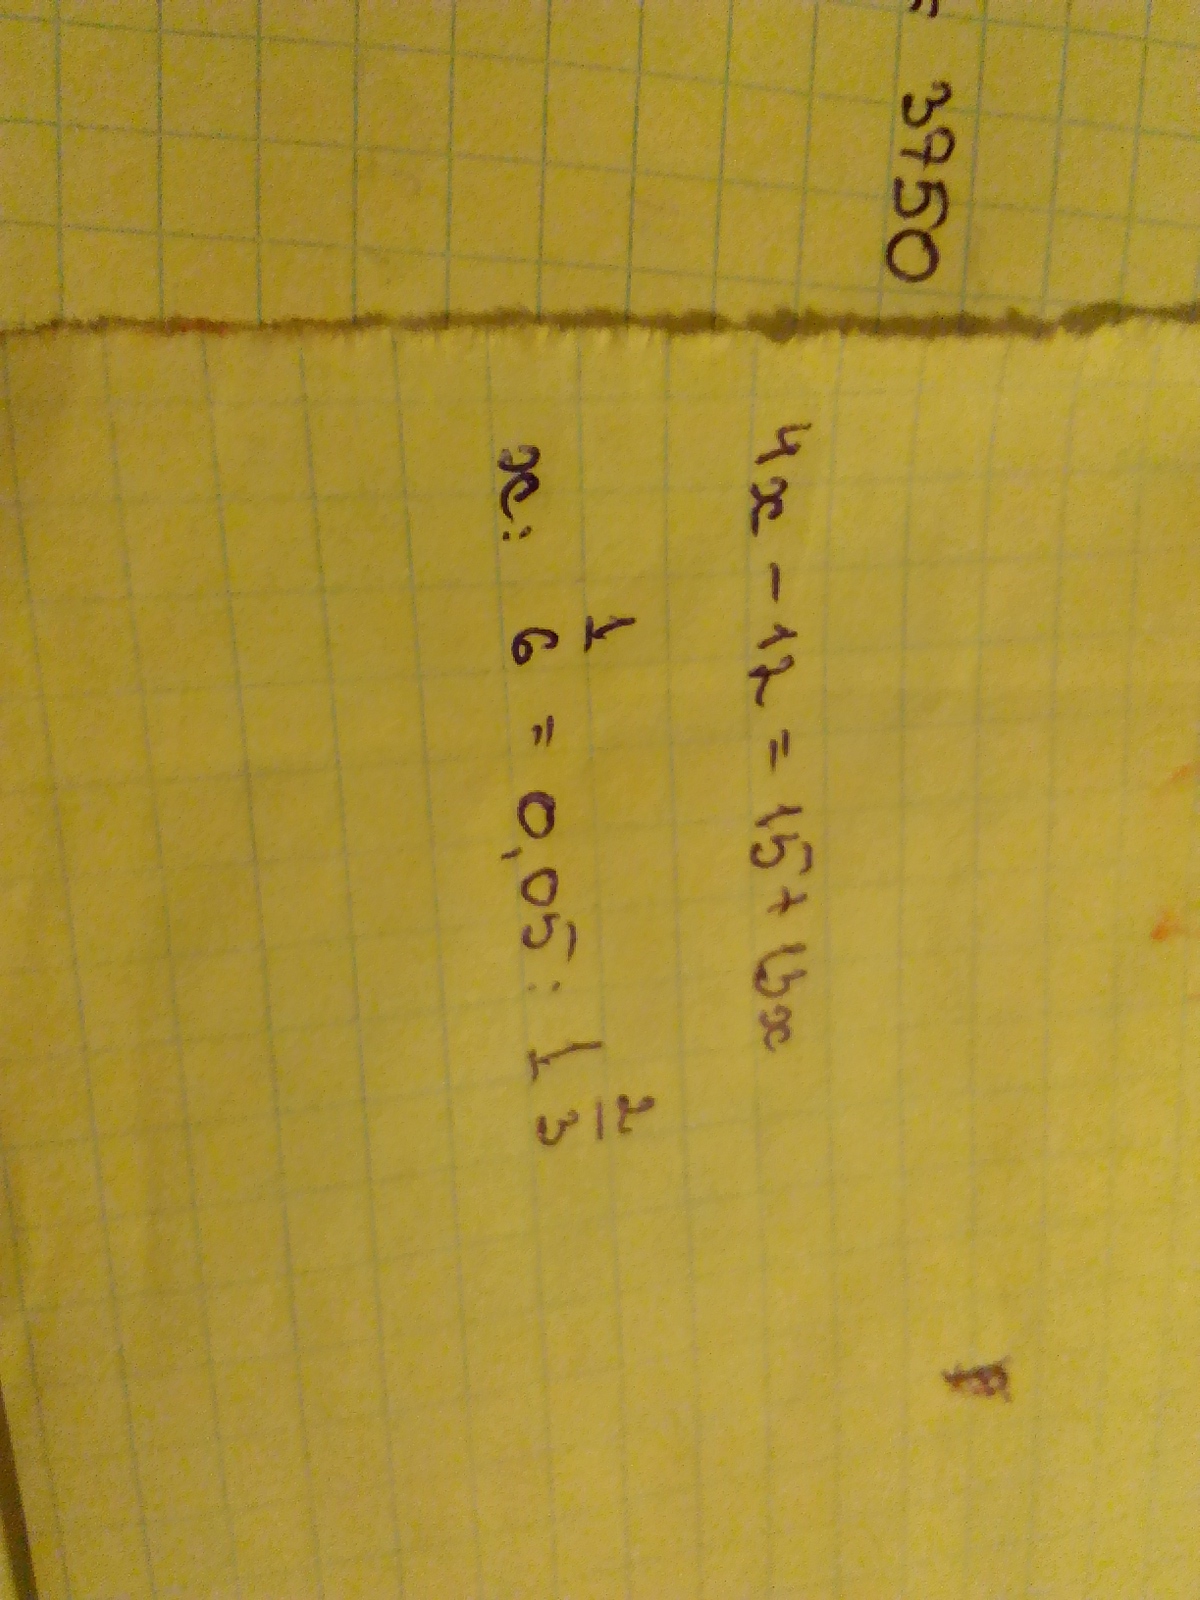 = 3750
4x - 12 = 15 + 13x
x : 1/6 = 0,05 : 1 2/3